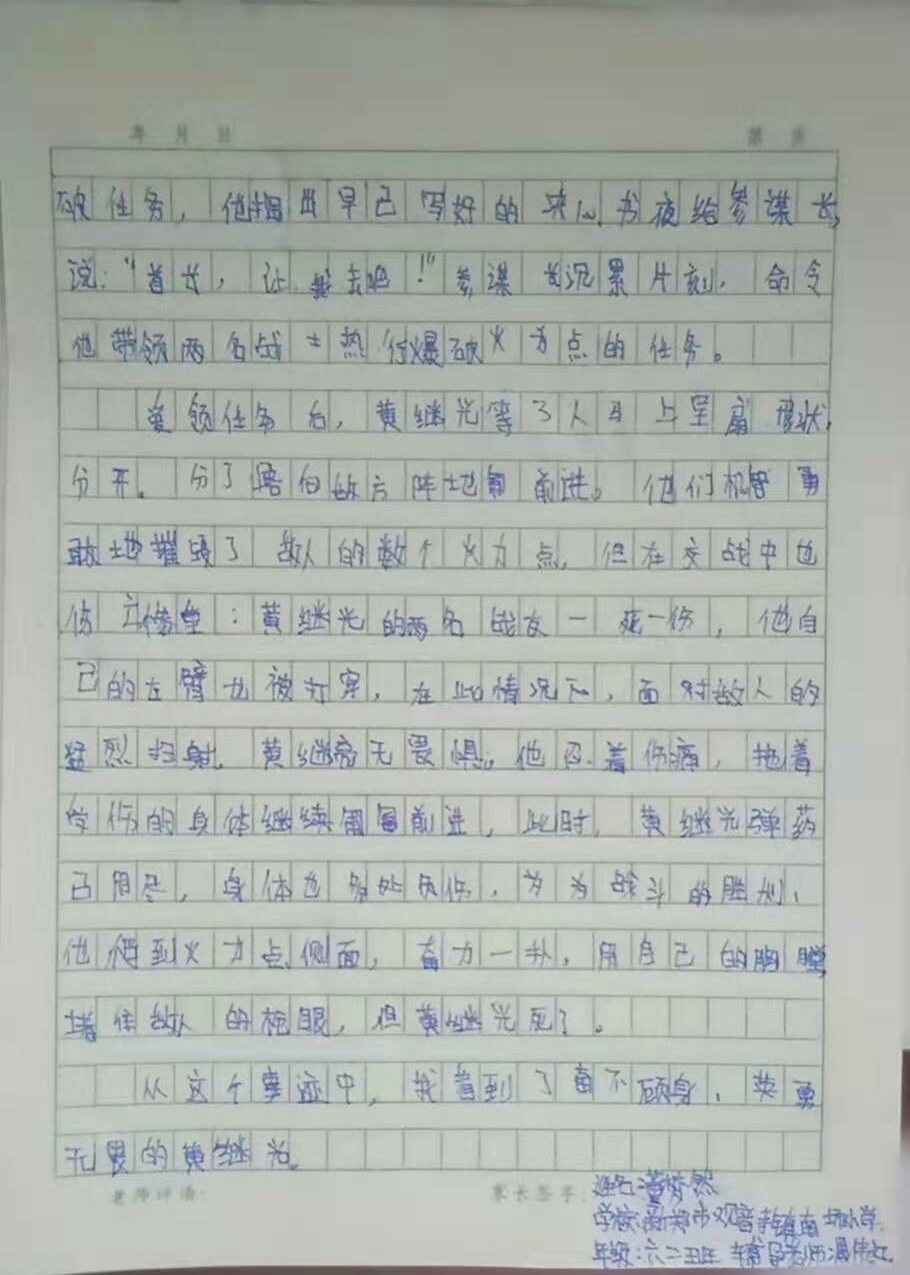 年 月 日 第 页
破任务，他掏出早已写好的决心书夜给参谋长，
说："首长，让我去吧！"参谋长沉累片刻，命令
他带领两名战士热行爆破火力点的任务。
领任务后，黄继光等了人马上呈扇形状，
分开。分了路向敌方阵地匍前进。他们机智勇
敢地摧毁了敌人的数个火力点，但在交战中也
伤亡惨重：黄继光的两名战友一死一伤，他自
己的左臂也被打穿，在此情况下，面对敌人的
猛烈扫射，黄继毫无畏惧。他忍着伤痛，拖着
受伤的身体继续匍匐前进，此时，黄继光弹药
已用尽，身体也多处负伤，为为战斗的胜利，
他爬到火力点侧面，奋力一扑，用自己的胸膛
堵住敌人的枪眼，但黄继光死了。
从这个事迹中，我看到了奋不顾身，英勇
无畏的黄继光。
老师评语： 家长签字：
姓名：黄梦然
学校：新郑市观音寺镇南 小学
年级：六二班 辅导老师：温伟红